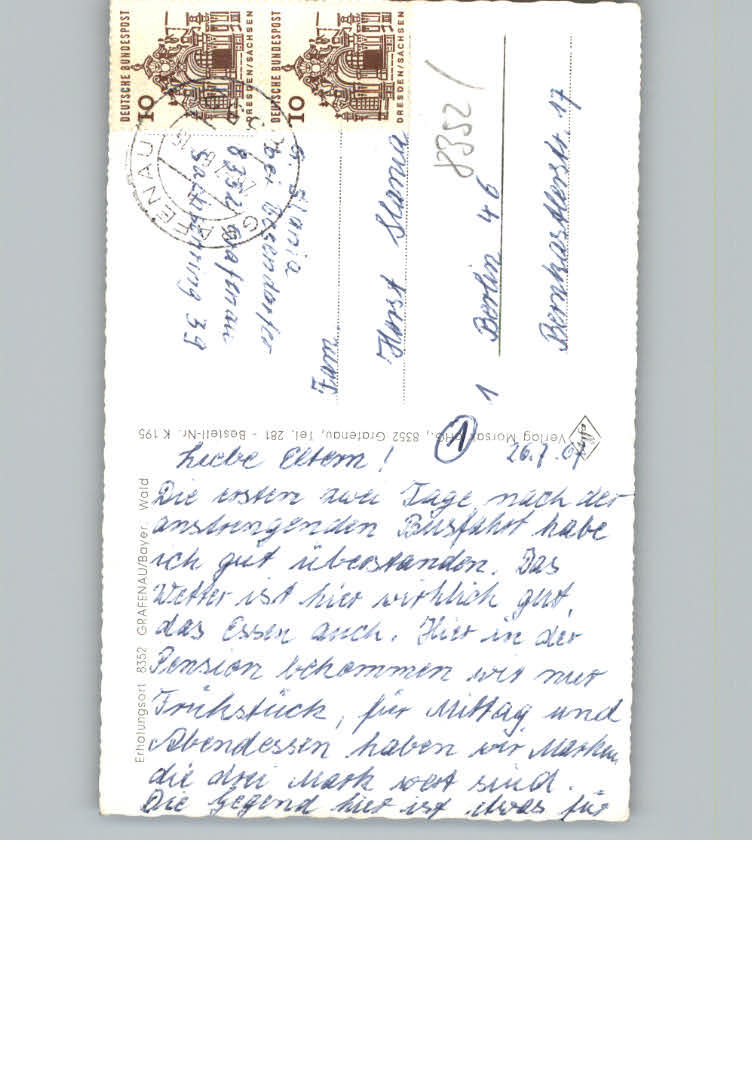 Liebe Eltern! ① 26.7.67
Die ersten zwei Tage nach der
anstrengenden Busfahrt habe
ich gut überstanden. Das
Wetter ist hier wirklich gut,
das Essen auch. Hier in der
Pension bekommen wir nur
Frühstück, für Mittag und
Abendessen haben wir Marken,
die drei Mark wert sind.
Die Gegend hier ist etwas für
Erholungsort 8352 GRAFENAU/Bayer. Wald
Verlag Morsak OHG., 8352 Grafenau, Tel. 281 - Bestell-Nr. K 195
DEUTSCHE BUNDESPOST
10
DRESDEN/SACHSEN
DEUTSCHE BUNDESPOST
10
DRESDEN/SACHSEN
GRAFENAU
Slania
bei
8352 Grafenau
39
Fam.
Horst Slania
8352/
1 Berlin 46
Bernkastlerstr. 17